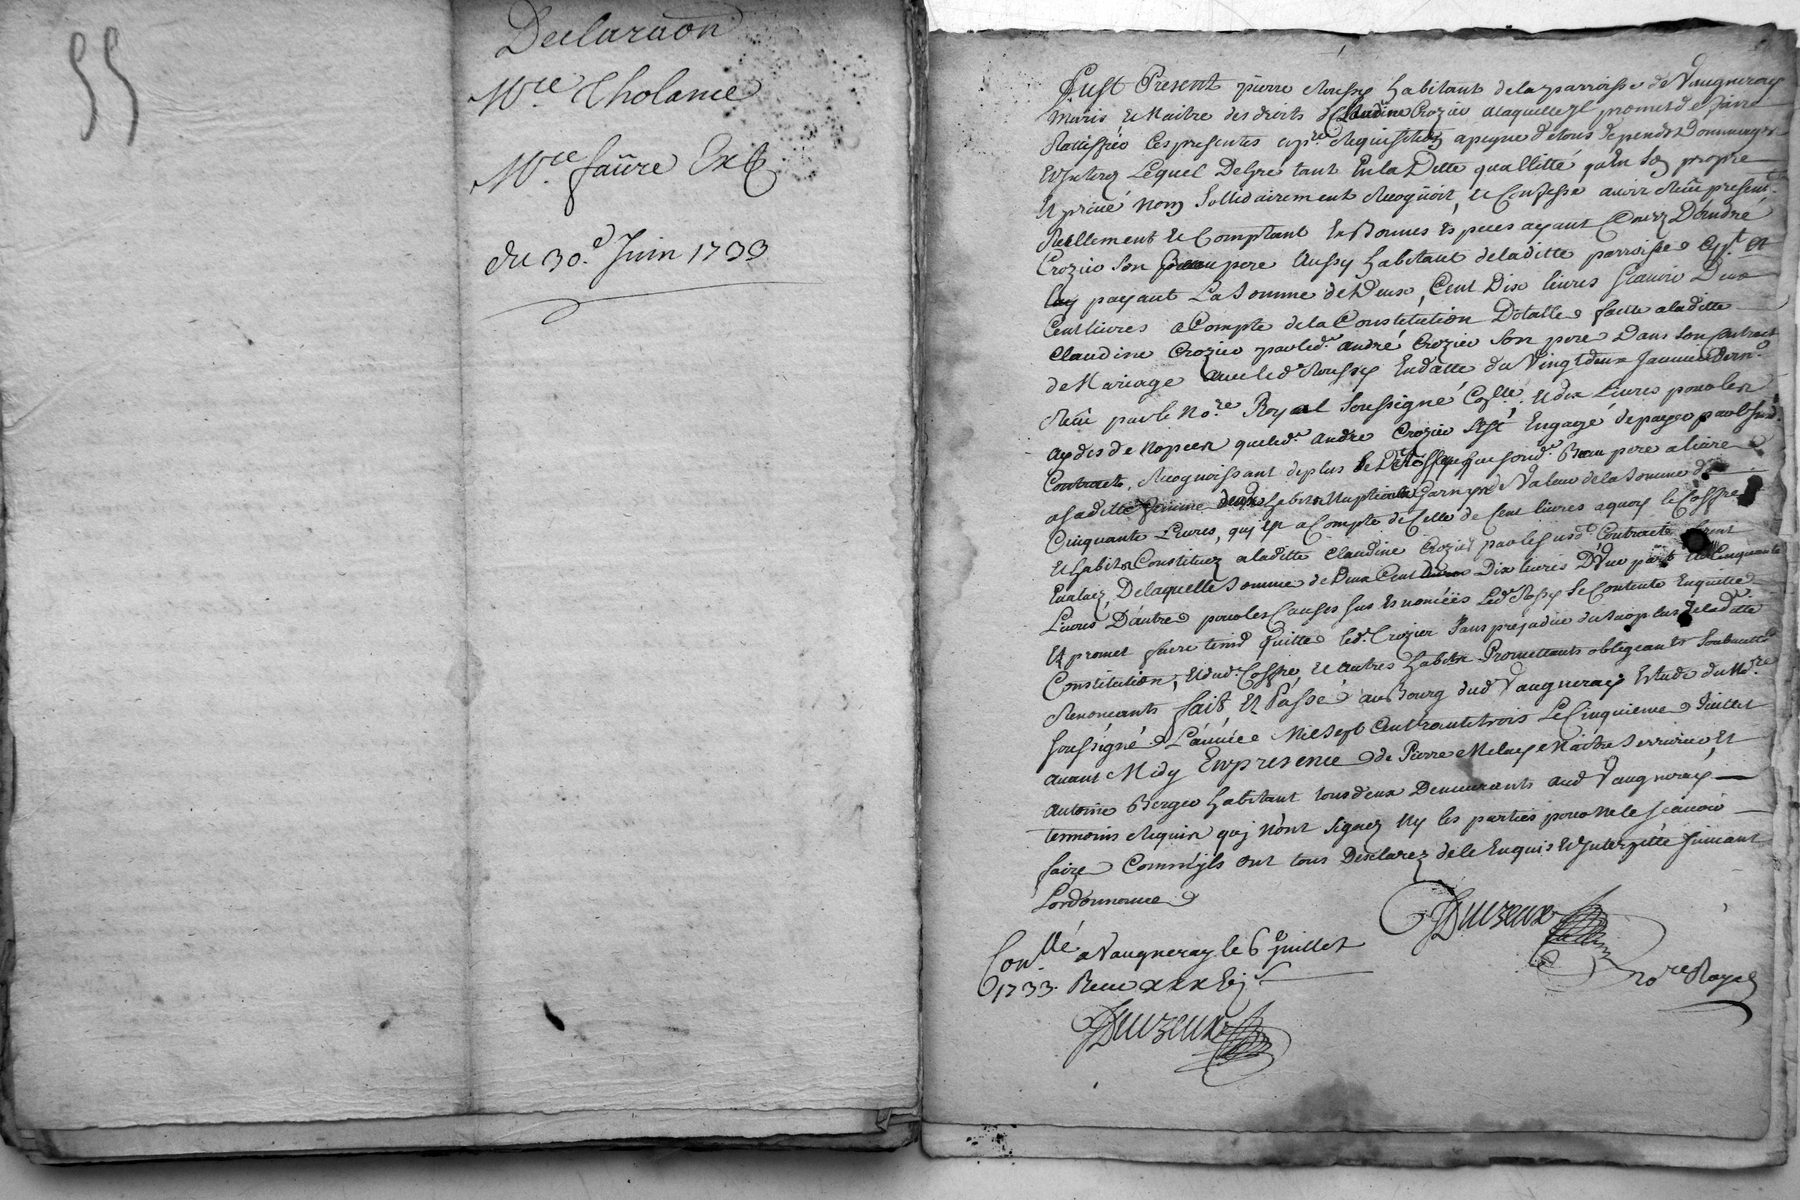 Declaraôn
Mre Tholance
Mre faure Ext
du 30e Juin 1733
Fust Present pierre Roussy habitant de la parroisse de Vaugneray
Maris et Maitre des droits de Claudine Crozier a laquelle Jl promet de faire
Rattiffier Ces presentes a pre Requisition a peyne de tous depends Dommages
Et Jnterez Lequel De Gre tant En la Ditte quallitté qu'en son propre
Et privé Nom Sollidairement Recognoit, et Confesse avoir Reçu presentt
Reellement et Comptant En Bonnes Especes ayant Courz D'André
Crozier Son Beau pere Aussy habitant de laditte parroisse cy pt et
luy payant La Somme de Deux Cent Dix livres Scavoir Deux
Cent livres a Compte de la Constitution Dotalle faitte a laditte
Claudine Crozier par led. André Crozier Son pere Dans Son Contract
de Mariage avec led. Roussy En datte du Vingt deux Janvier Dern.
Reçu par le Nore Royal Soussigné Conllé. Et dix Livres pour les
aydes de Nopces que led. André Crozier s'est Engagé de payer par le susd.
Contract, Recognoissant de plus que sond. Beau pere a livré
a sa ditte femme deux habits Nuptiaux Garnys de Valeur de la Somme de
Cinquante Livres, qui est a Compte de Celle de Cent livres a quoy le Coffre
et habits Constituez a laditte Claudine Crozier par le susd. Contract furent
Evaluez, De laquelle Somme de Deux Cent Dix livres D'Une part Et Cinquante
Livres D'autre pour les Causes sus Enoncées Led. Roussy Se Contente En quitte
Et promet faire tenir quitte led. Crozier Sans prejudice du Surplus de laditte
Constitution, et dud. Coffre, et autres habits Promettants obligeants Soubmettts
Renonceants fait Et Passé au Bourg dud. Vaugneray Estude du Nore
soussigné L'année Mil Sept Cent trente trois Le Cinquieme Juillet
avant Midy En presence de Pierre Melay Maitre Serrurier, Et
Antoine Berger habitant tous deux Demeurants aud. Vaugneray
temoins Requis qui n'ont signez Ny les parties pour ne le scavoir
faire Comm'yls ont tous Desclarez de le Enquis et Jnterpellé Suivant
L'ordonnance
Duzeux
nore Royal
Conllé a Vaugneray le 6e Juillet
1733. Recu
Duzeux